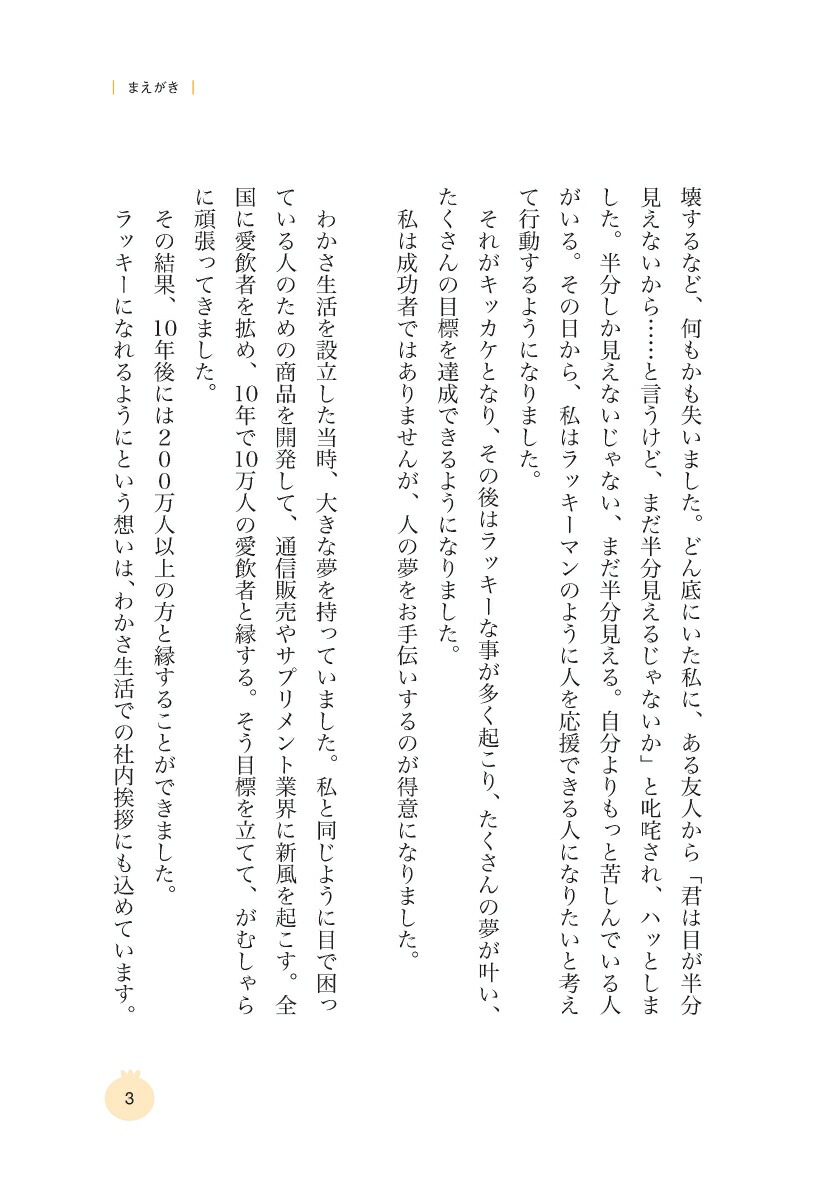 まえがき
壊するなど、何もかも失いました。どん底にいた私に、ある友人から「君は目が半分
見えないから……と言うけど、まだ半分見えるじゃないか」と叱咤され、ハッとしま
した。半分しか見えないじゃない、まだ半分見える。自分よりもっと苦しんでいる人
がいる。その日から、私はラッキーマンのように人を応援できる人になりたいと考え
て行動するようになりました。
それがキッカケとなり、その後はラッキーな事が多く起こり、たくさんの夢が叶い、
たくさんの目標を達成できるようになりました。
私は成功者ではありませんが、人の夢をお手伝いするのが得意になりました。
わかさ生活を設立した当時、大きな夢を持っていました。私と同じように目で困っ
ている人のための商品を開発して、通信販売やサプリメント業界に新風を起こす。全
国に愛飲者を拡め、10年で10万人の愛飲者と縁する。そう目標を立てて、がむしゃら
に頑張ってきました。
その結果、10年後には２００万人以上の方と縁することができました。
ラッキーになれるようにという想いは、わかさ生活での社内挨拶にも込めています。
3